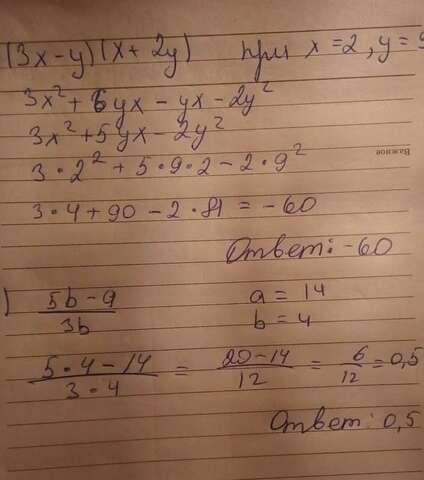 (3x-y)(x+2y) при x=2, y=9
3x²+6yx-yx-2y²
3x²+5yx-2y²
3·2²+5·9·2-2·9²
Важное
3·4+90-2·81=-60
Ответ: -60
) (5b-a)/(3b) a=14
b=4
(5·4-14)/(3·4) = (20-14)/12 = 6/12 = 0,5
Ответ: 0,5